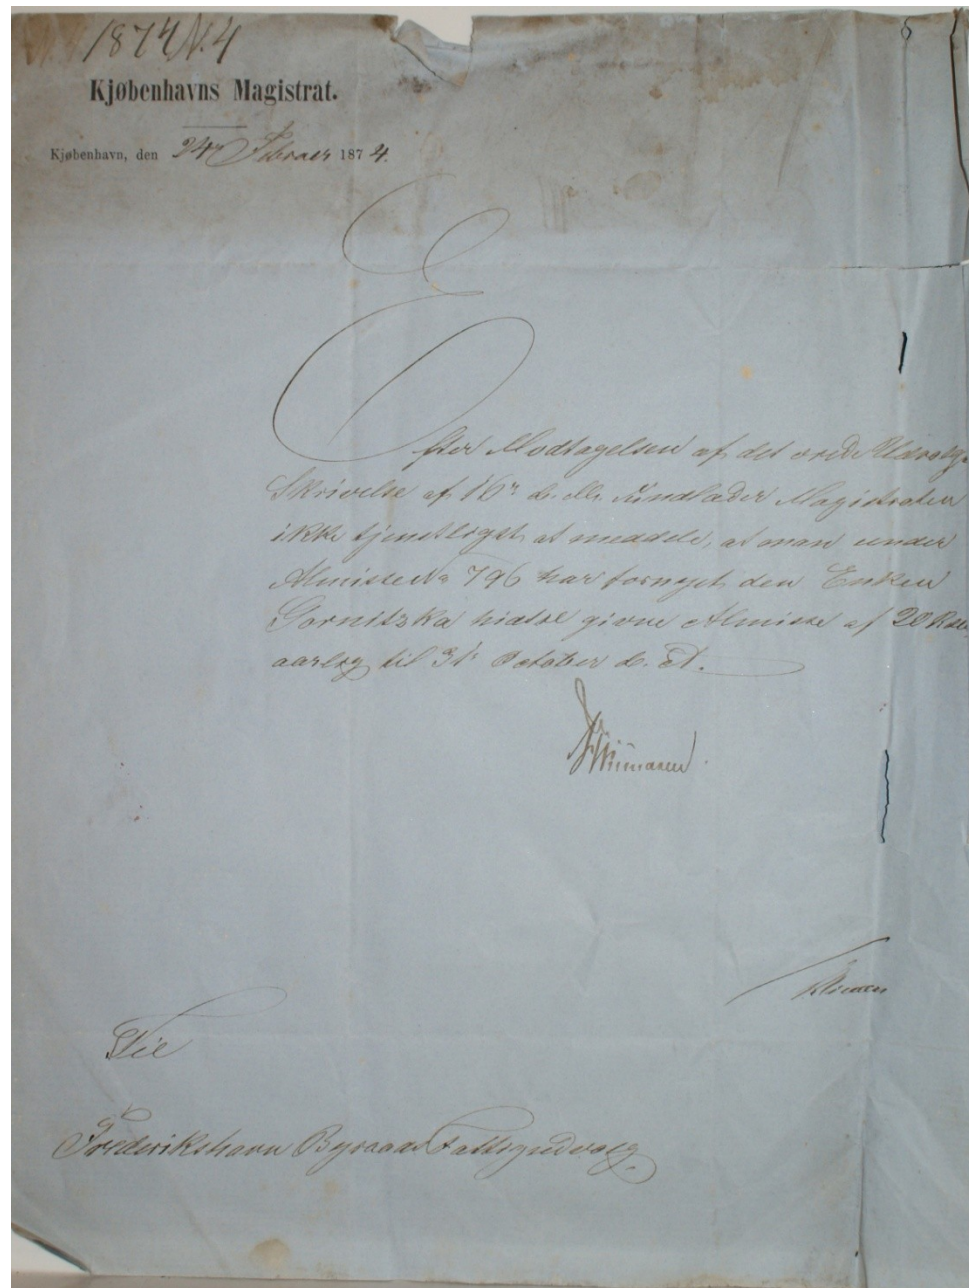 1874 N. 4
Kjøbenhavns Magistrat.
Kjøbenhavn, den 24de Februar 1874.
Efter Modtagelsen af det ærede Udvalgs
Skrivelse af 16de d. M. undlader Magistraten
ikke tjenstligst at meddele, at man under
Almisse No 796 har fornyet den Enken
Gornitzka hidtil givne Almisse af 20 Rdl.
aarlig til 31te October d. A.
Til
Frederikshavn Byraads Fattigudvalg.